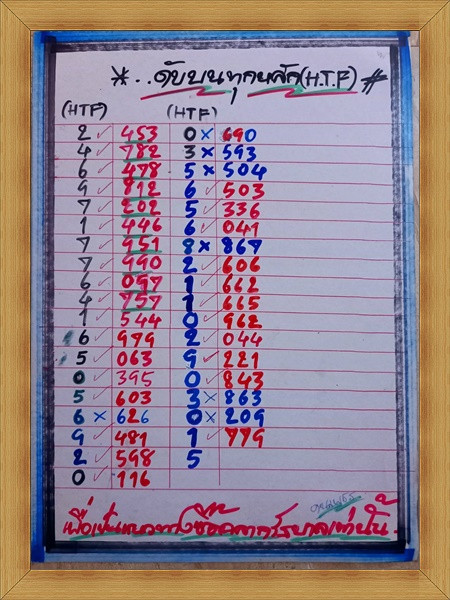 *..ดับบนทุกหลัก(H.T.F)#
(HTF) (HTF)
2 ✓ 453 0 × 690
4 ✓ 782 3 × 593
6 ✓ 478 5 × 504
9 ✓ 812 6 ✓ 503
7 ✓ 202 5 ✓ 336
1 ✓ 446 6 ✓ 041
7 ✓ 951 8 × 867
7 ✓ 990 2 ✓ 606
6 ✓ 097 1 ✓ 662
4 ✓ 757 1 ✓ 665
1 ✓ 544 0 ✓ 962
6 ✓ 979 2 ✓ 044
5 ✓ 063 9 ✓ 221
0 ✓ 395 0 ✓ 843
5 ✓ 603 3 × 863
6 × 626 0 × 209
9 ✓ 481 1 ✓ 779
2 ✓ 598 5
0 ✓ 116
เพื่อเป็นแนวทางซื้อสลากรัฐบาลเท่านั้น.